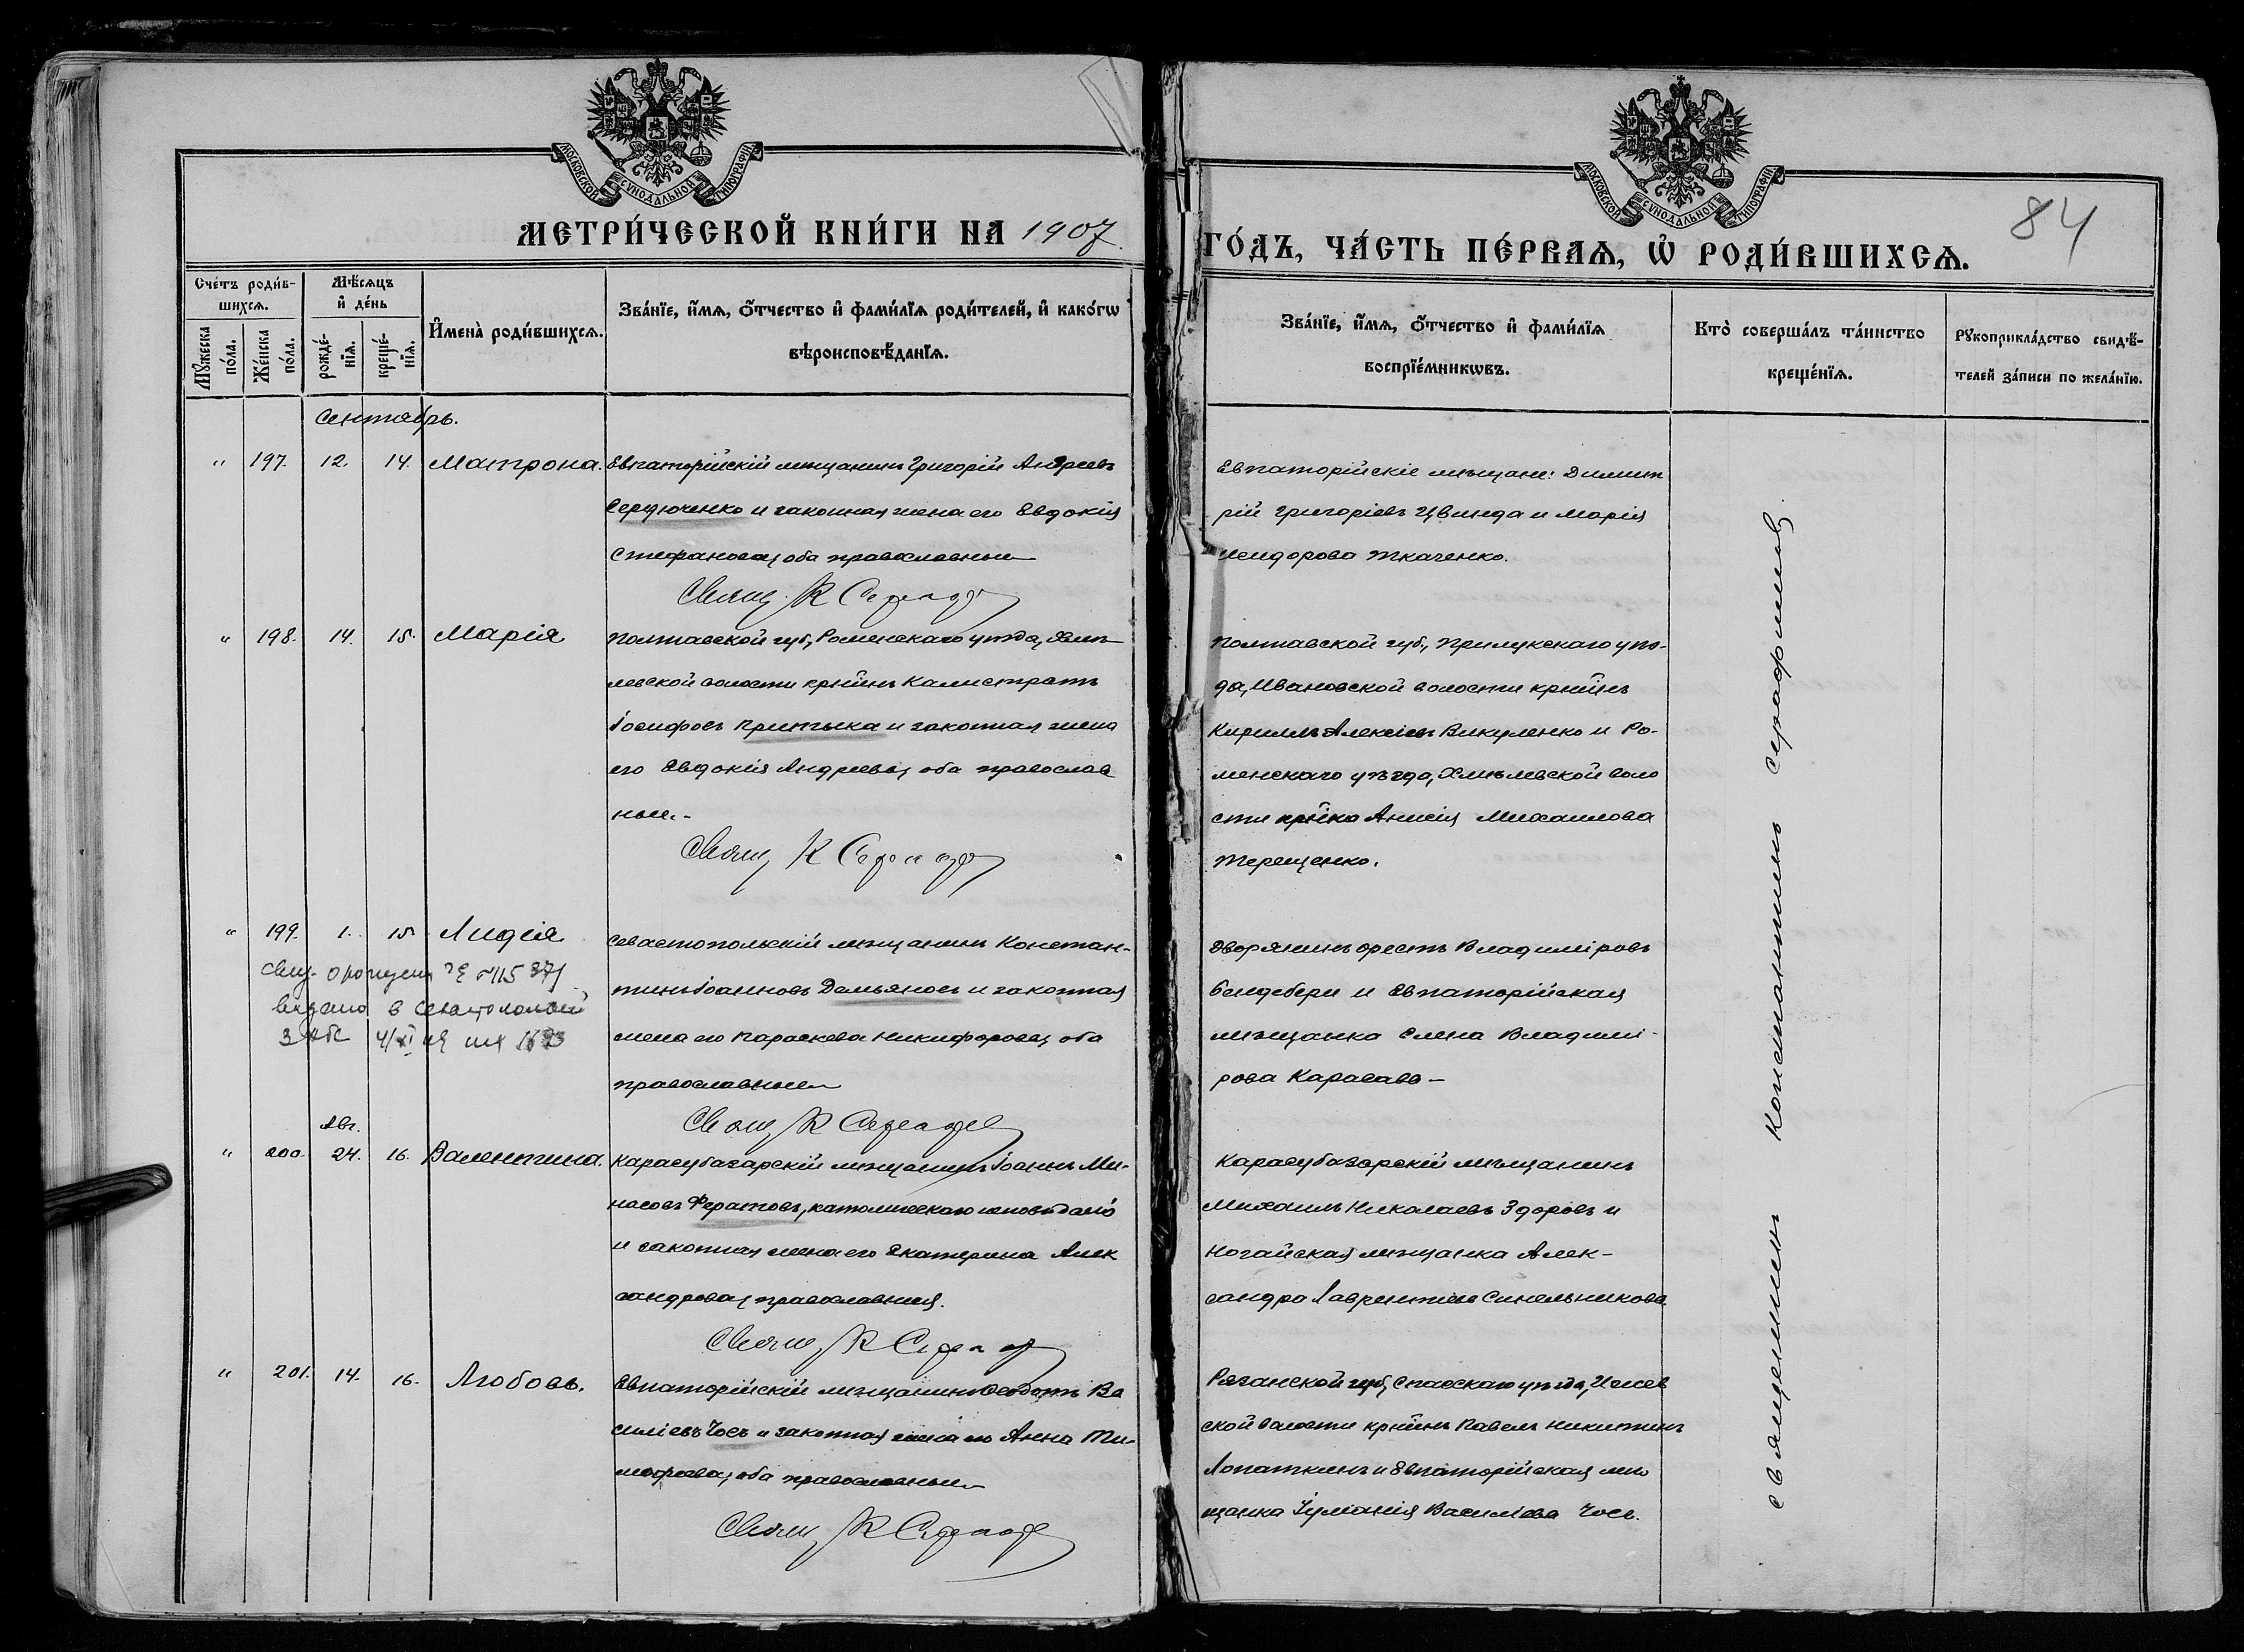 МОСКОВСКОЙ СѴНОДАЛЬНОЙ ТИПОГРАФІИ
МЕТРИ́ЧЕСКОЙ КНИ́ГИ НА 1907
Сче́тъ роди́в-
шихсѧ.
Мѣ́сѧцъ
и҆ де́нь
Мꙋжеска
по́ла.
Же́нска
по́ла.
рожде́-
нїѧ.
креще́-
нїѧ.
И҆мена̀ роди́вшихсѧ.
Зва́нїе, и҆́мѧ, ѻ҆́тчество и҆ фами́лїѧ роди́телей, и҆ како́гѡ
вѣроисповѣ́данїѧ.
Сентябрь.
" 197. 12. 14. Матрона.
Евпаторійскій мѣщанинъ Григорій Андреевъ
Сердюченко и законная жена его Евдокія
Стефановна, оба православные
Свящ. К Сераф
" 198. 14. 15. Марія
Полтавской губ, Роменскаго уѣзда, Хмѣ
левской волости кр-нинъ Калистратъ
Іосифовъ Притыка и законная жена
его Евдокія Андреева, оба православ
ные.-
Свящ К Сераф
" 199. 1. 15. Лидія
выдано в Севастополе
Севастопольскій мѣщанинъ Констан-
тинъ Іоанновъ Демьяновъ и законная
жена его Параскева Никифорова, оба
православные
Свящ К Сераф
Авг.
" 200. 24. 16. Валентина.
Карасубазарскій мѣщанинъ Іоаннъ Ми-
насовъ Фератовъ, католическаго
и законная жена его Екатерина Алек
сандрова, православная.
Свящ К Сераф
" 201. 14. 16. Любовь.
Евпаторійскій мѣщанинъ Ѳеодотъ Ва
силіевъ Чосъ и законная жена его Анна Ти-
мофеева, оба православные
Свящ К Сераф
МОСКОВСКОЙ СѴНОДАЛЬНОЙ ТИПОГРАФІИ
84
ГО́ДЪ, ЧА́СТЬ ПЕ́РВАѦ, Ѡ҆ РОДИ́ВШИХСѦ.
Зва́нїе, и҆́мѧ, ѻ҆́тчество и҆ фами́лїѧ
воспрїе́мникѡвъ.
Кто̀ соверша́лъ та́инство
креще́нїѧ.
Рꙋкоприкла́дство свидѣ́-
телей за́писи по жела́нїю.
Евпаторійскіе мѣщане: Димит
рій Григоріевъ Цвинда и Марія
Исидорова Ткаченко.
Полтавской губ., Прилукскаго уѣз-
да, Ивановской волости кр-нинъ
Кириллъ Алексіевъ Викуленко и Ро-
менскаго уѣзда, Хмѣлевской воло
сти кр-нка Анисія Михаилова
Терещенко.
Дворянинъ Орестъ Владиміровъ
Бендебери и Евпаторійская
мѣщанка Елена Владими-
рова Карасава-
Карасубазарскій мѣщанинъ
Михаилъ Николаевъ Здоровъ и
Ногайская мѣщанка Алек-
сандра Лаврентіева Синельникова.
Рязанской губ, Спасскаго уѣзда, Ижев
ской волости кр-нинъ Павелъ Никитинъ
Лопаткинъ и Евпаторійская мѣ
щанка Іуліанія Василіева Чосъ.
Священникъ Константинъ Серафимовъ